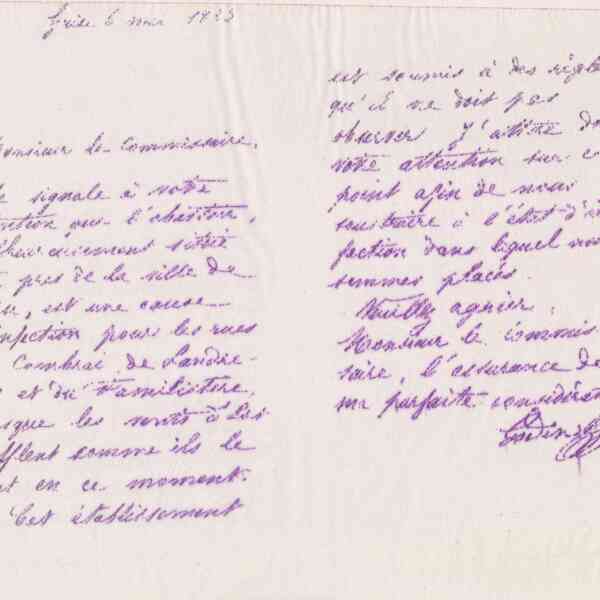 Guise 6 mai 1883
Monsieur le Commissaire,
Je signale à votre
attention que l'abattoir,
malheureusement situé
près de la ville de
est une cause
d'infection pour les rues
Cambrai, de Landre-
et du Familistère,
lorsque les vents
soufflent comme ils le
font en ce moment.
Cet établissement
est soumis à des règles
qu'il ne doit pas
observer. J'attire donc
votre attention sur ce
point afin de nous
soustraire à l'état d'in-
fection dans lequel nous
sommes placés.
Veuillez agréer,
Monsieur le Commis-
saire, l'assurance de
ma parfaite considération
Godin